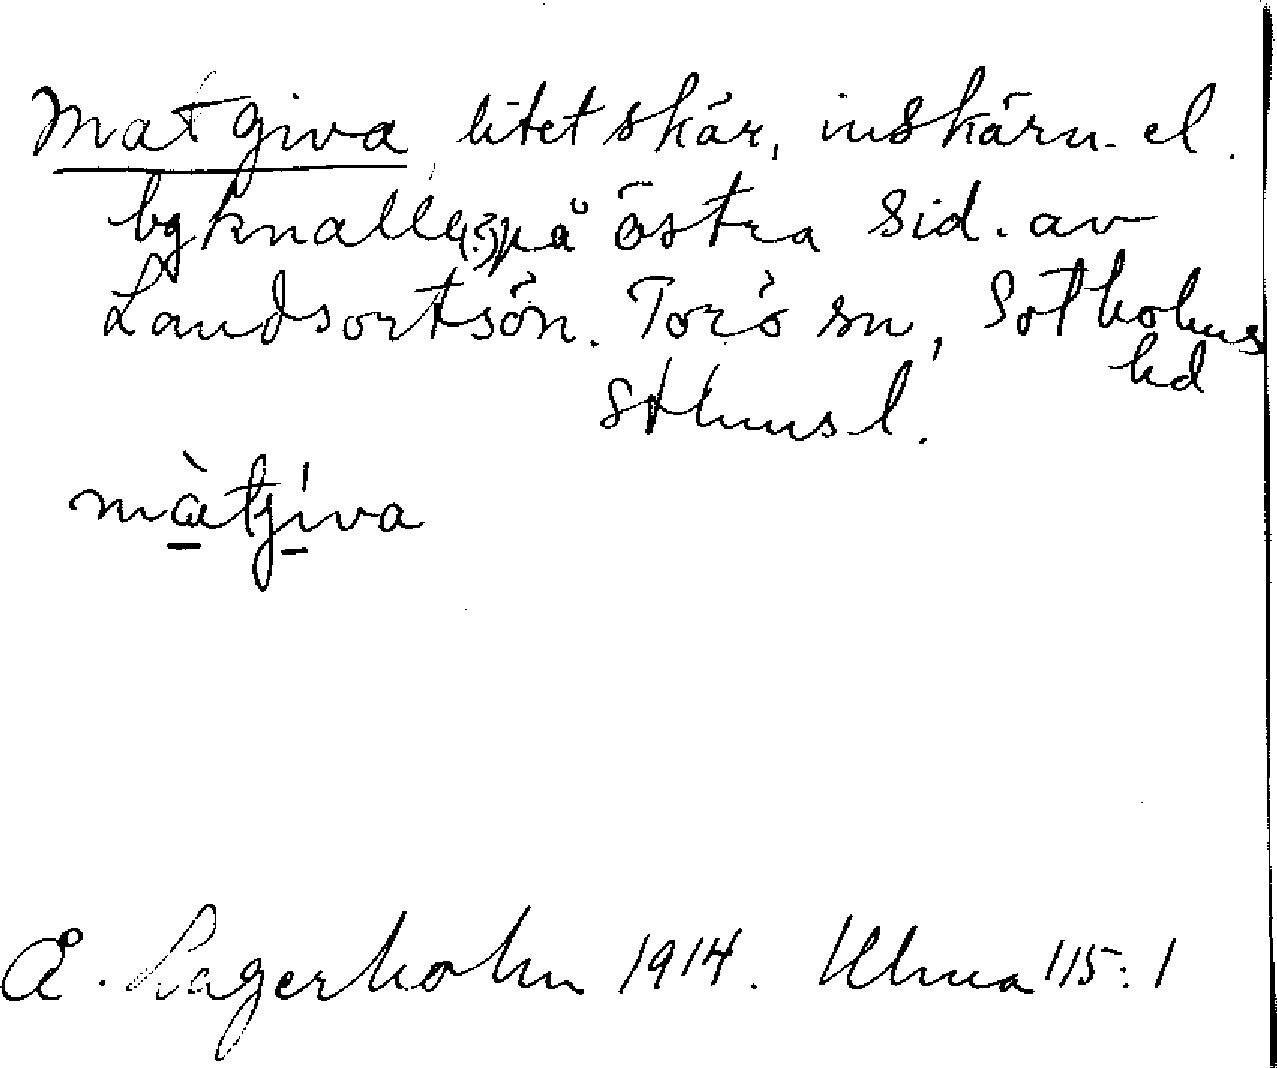 Matgiva, litet skär, inskärn. el.
bgknalle(?) på östra sid. av
Landsortsön. Torö sn, Sotholms
hd
Sthmsl.
màtjíva
Å. Lagerholm 1914. Ulma 115:1